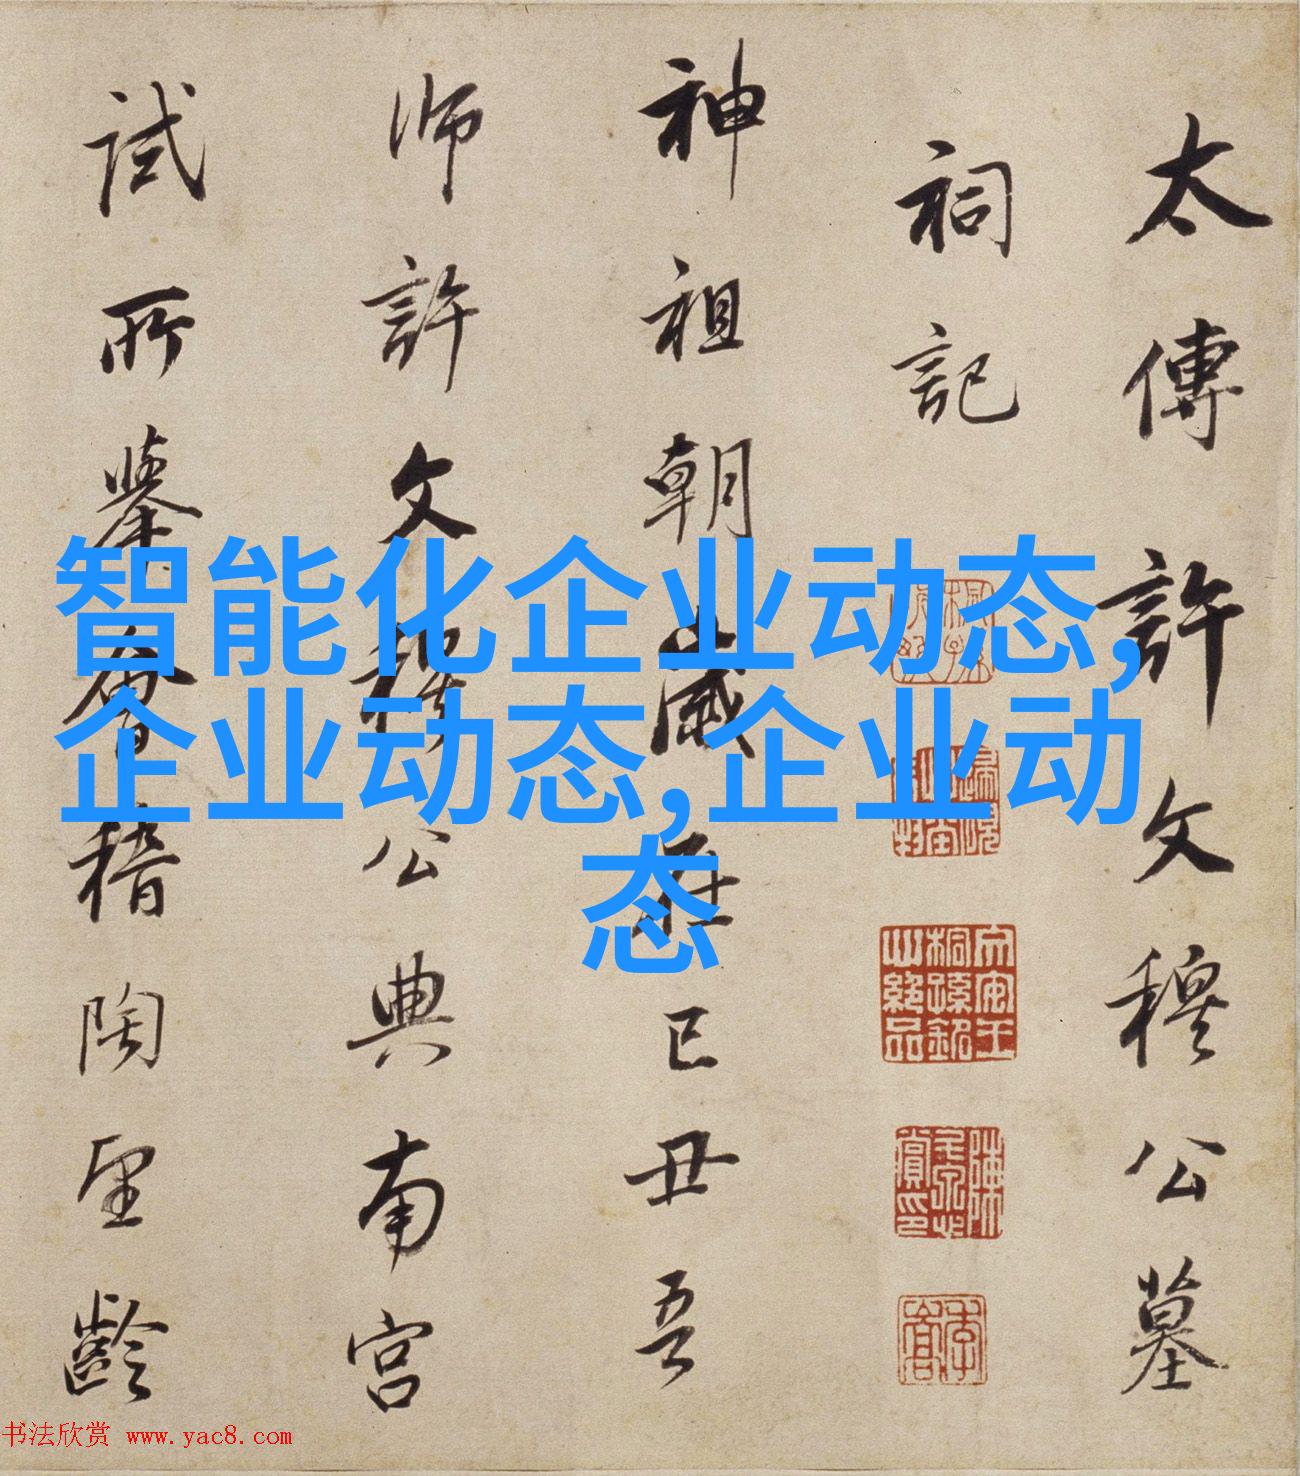 太傳許文穆公墓
祠記
神祖朝歲在己丑吾
師許文穆公典南宮
試所舉會稽陶望齡
智能化企业动态,
企业动态,企业动
态
书法欣赏 www.yac8.com